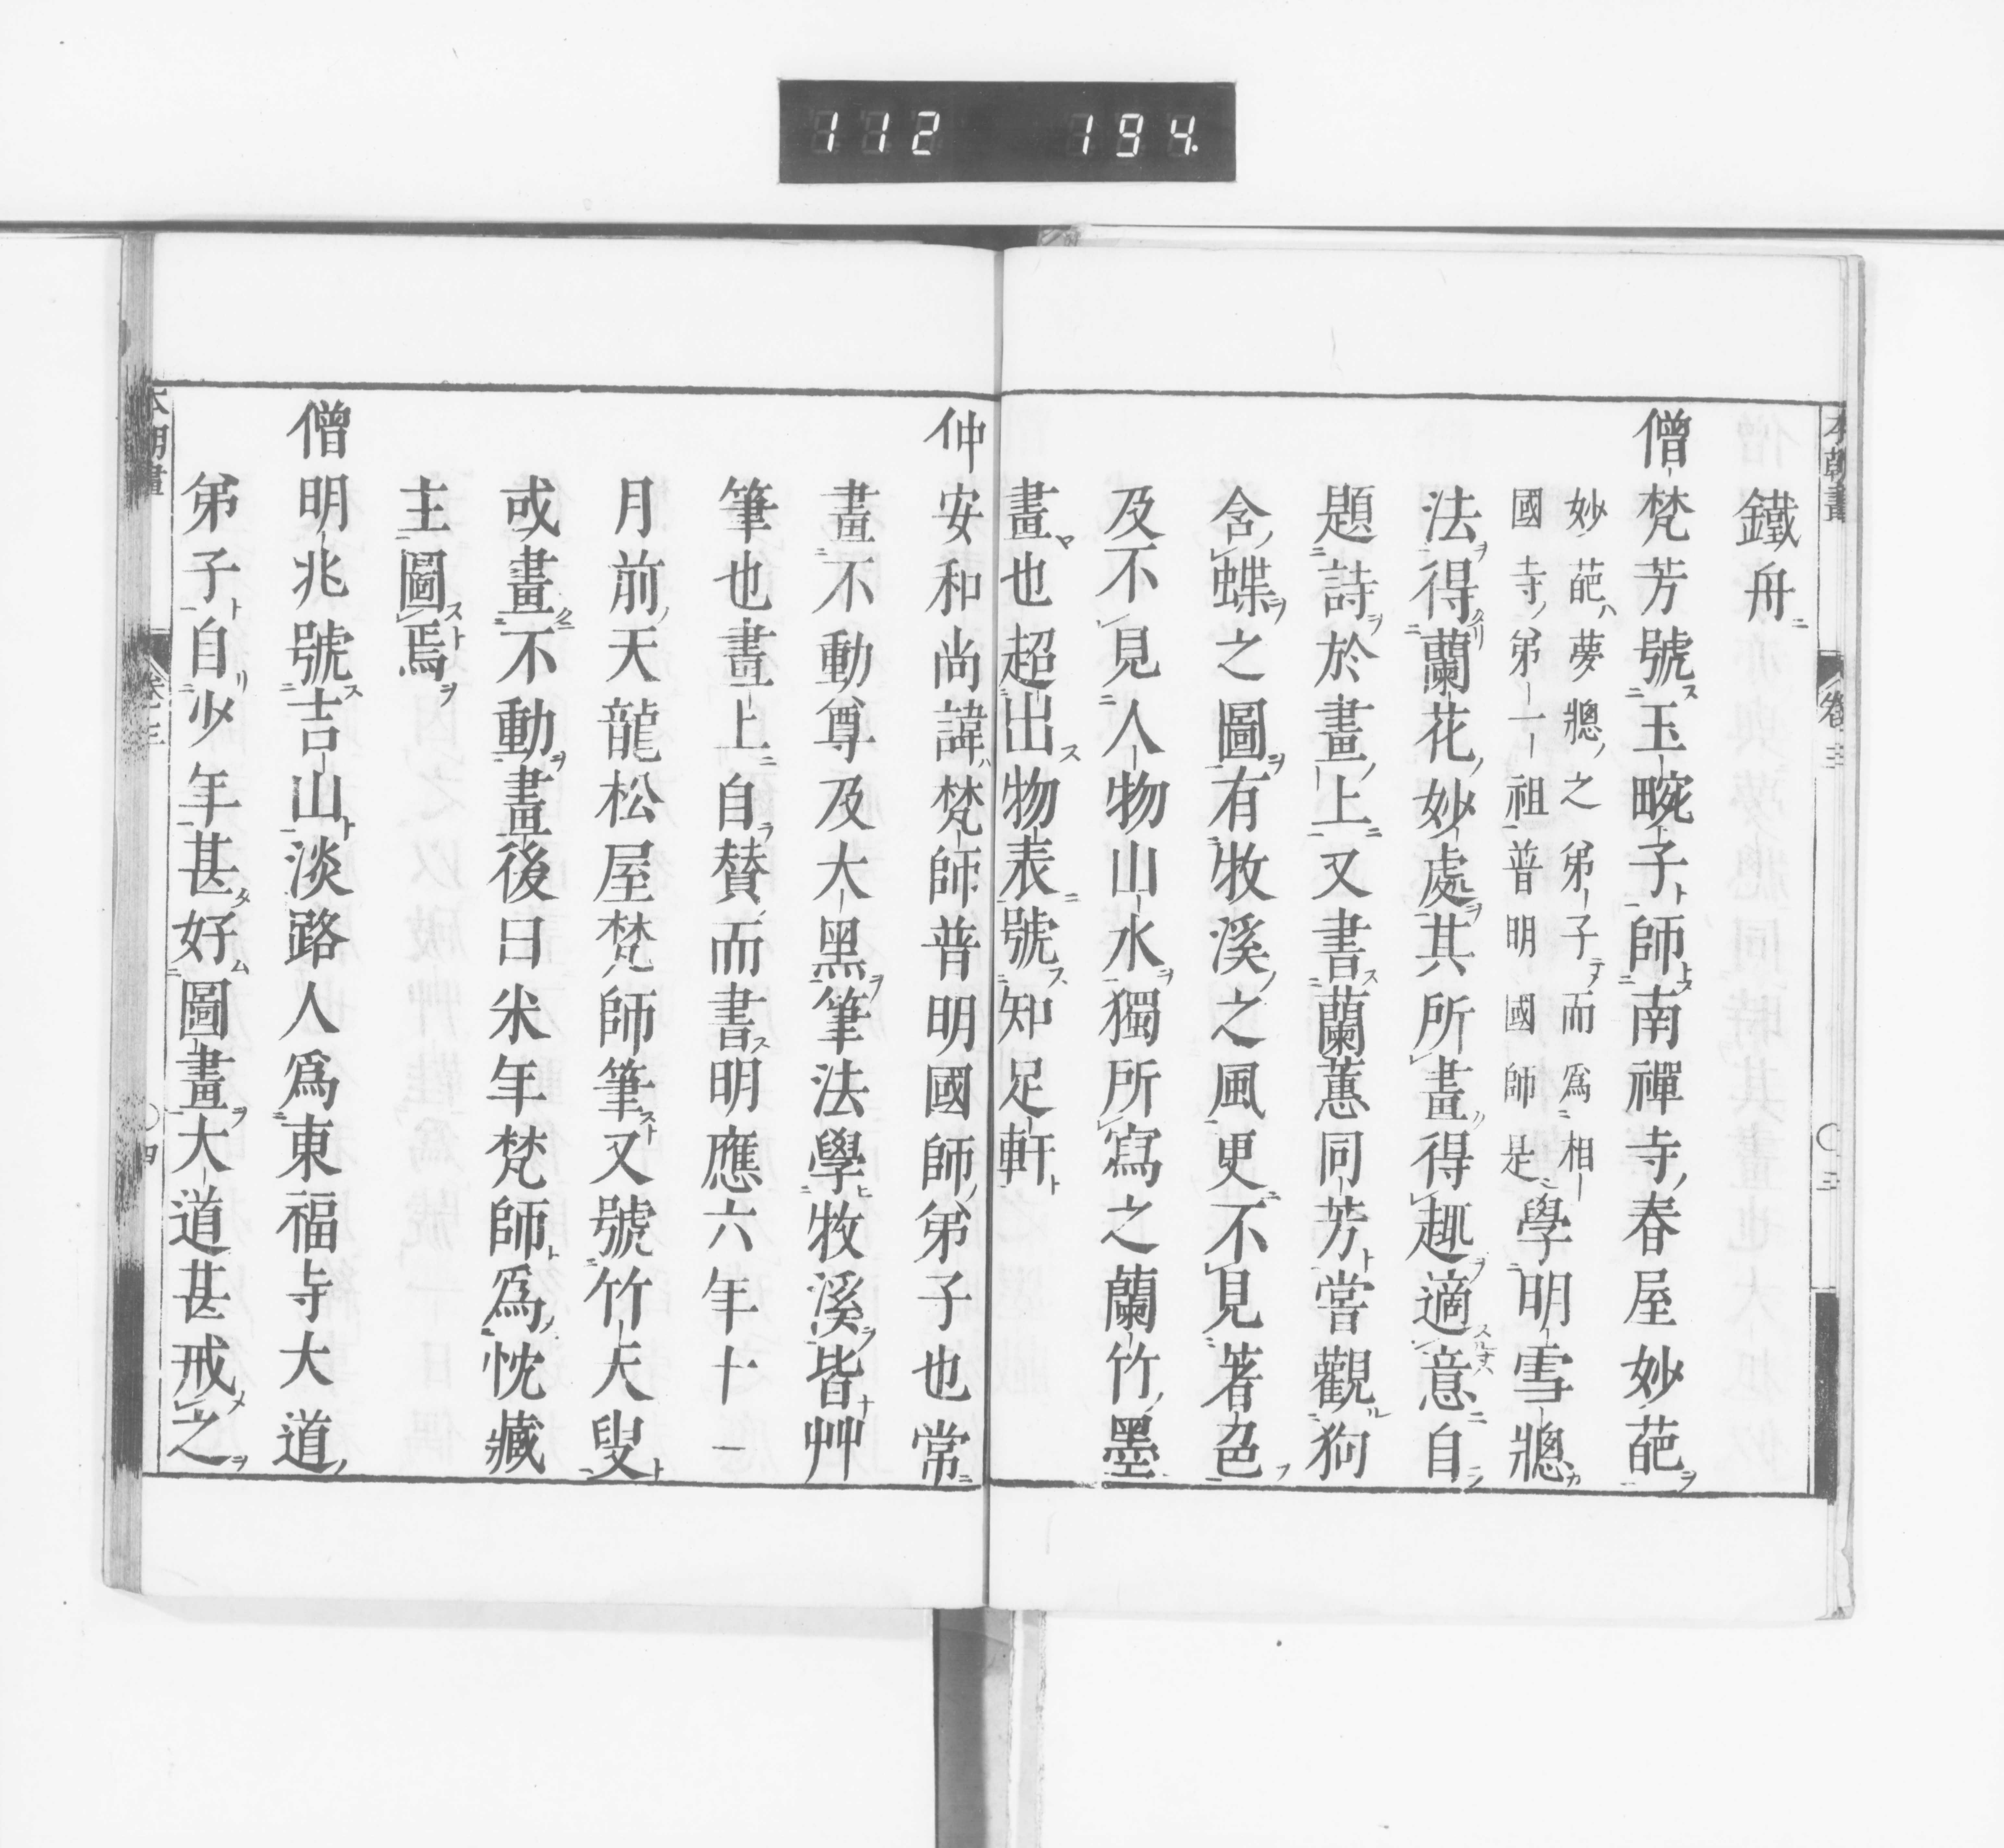 112 194.
本朝畫 卷三 〇三
鐵舟
僧梵芳號玉畹子師南禪寺春屋妙葩
妙葩夢牕之弟子而爲相
國寺弟一祖普明國師是學明雪牕
法得蘭花妙處其所畫得趣適意自
題詩於畫上又書蘭蕙同芳當觀狗
含蝶之圖有牧溪之風更不見著色
及不見人物山水獨所寫之蘭竹墨
畫也超出物表號知足軒
仲安和尚諱梵師普明國師弟子也常
畫不動尊及大黑筆法學牧溪皆艸
筆也畫上自贊而書明應六年十一
月前天龍松屋梵師筆又號竹天叟
或畫不動畫後曰米年梵師爲忱藏
主圖焉
僧明兆號吉山淡路人爲東福寺大道
弟子自少年甚好圖畫大道甚戒之
本朝畫 卷三 〇四